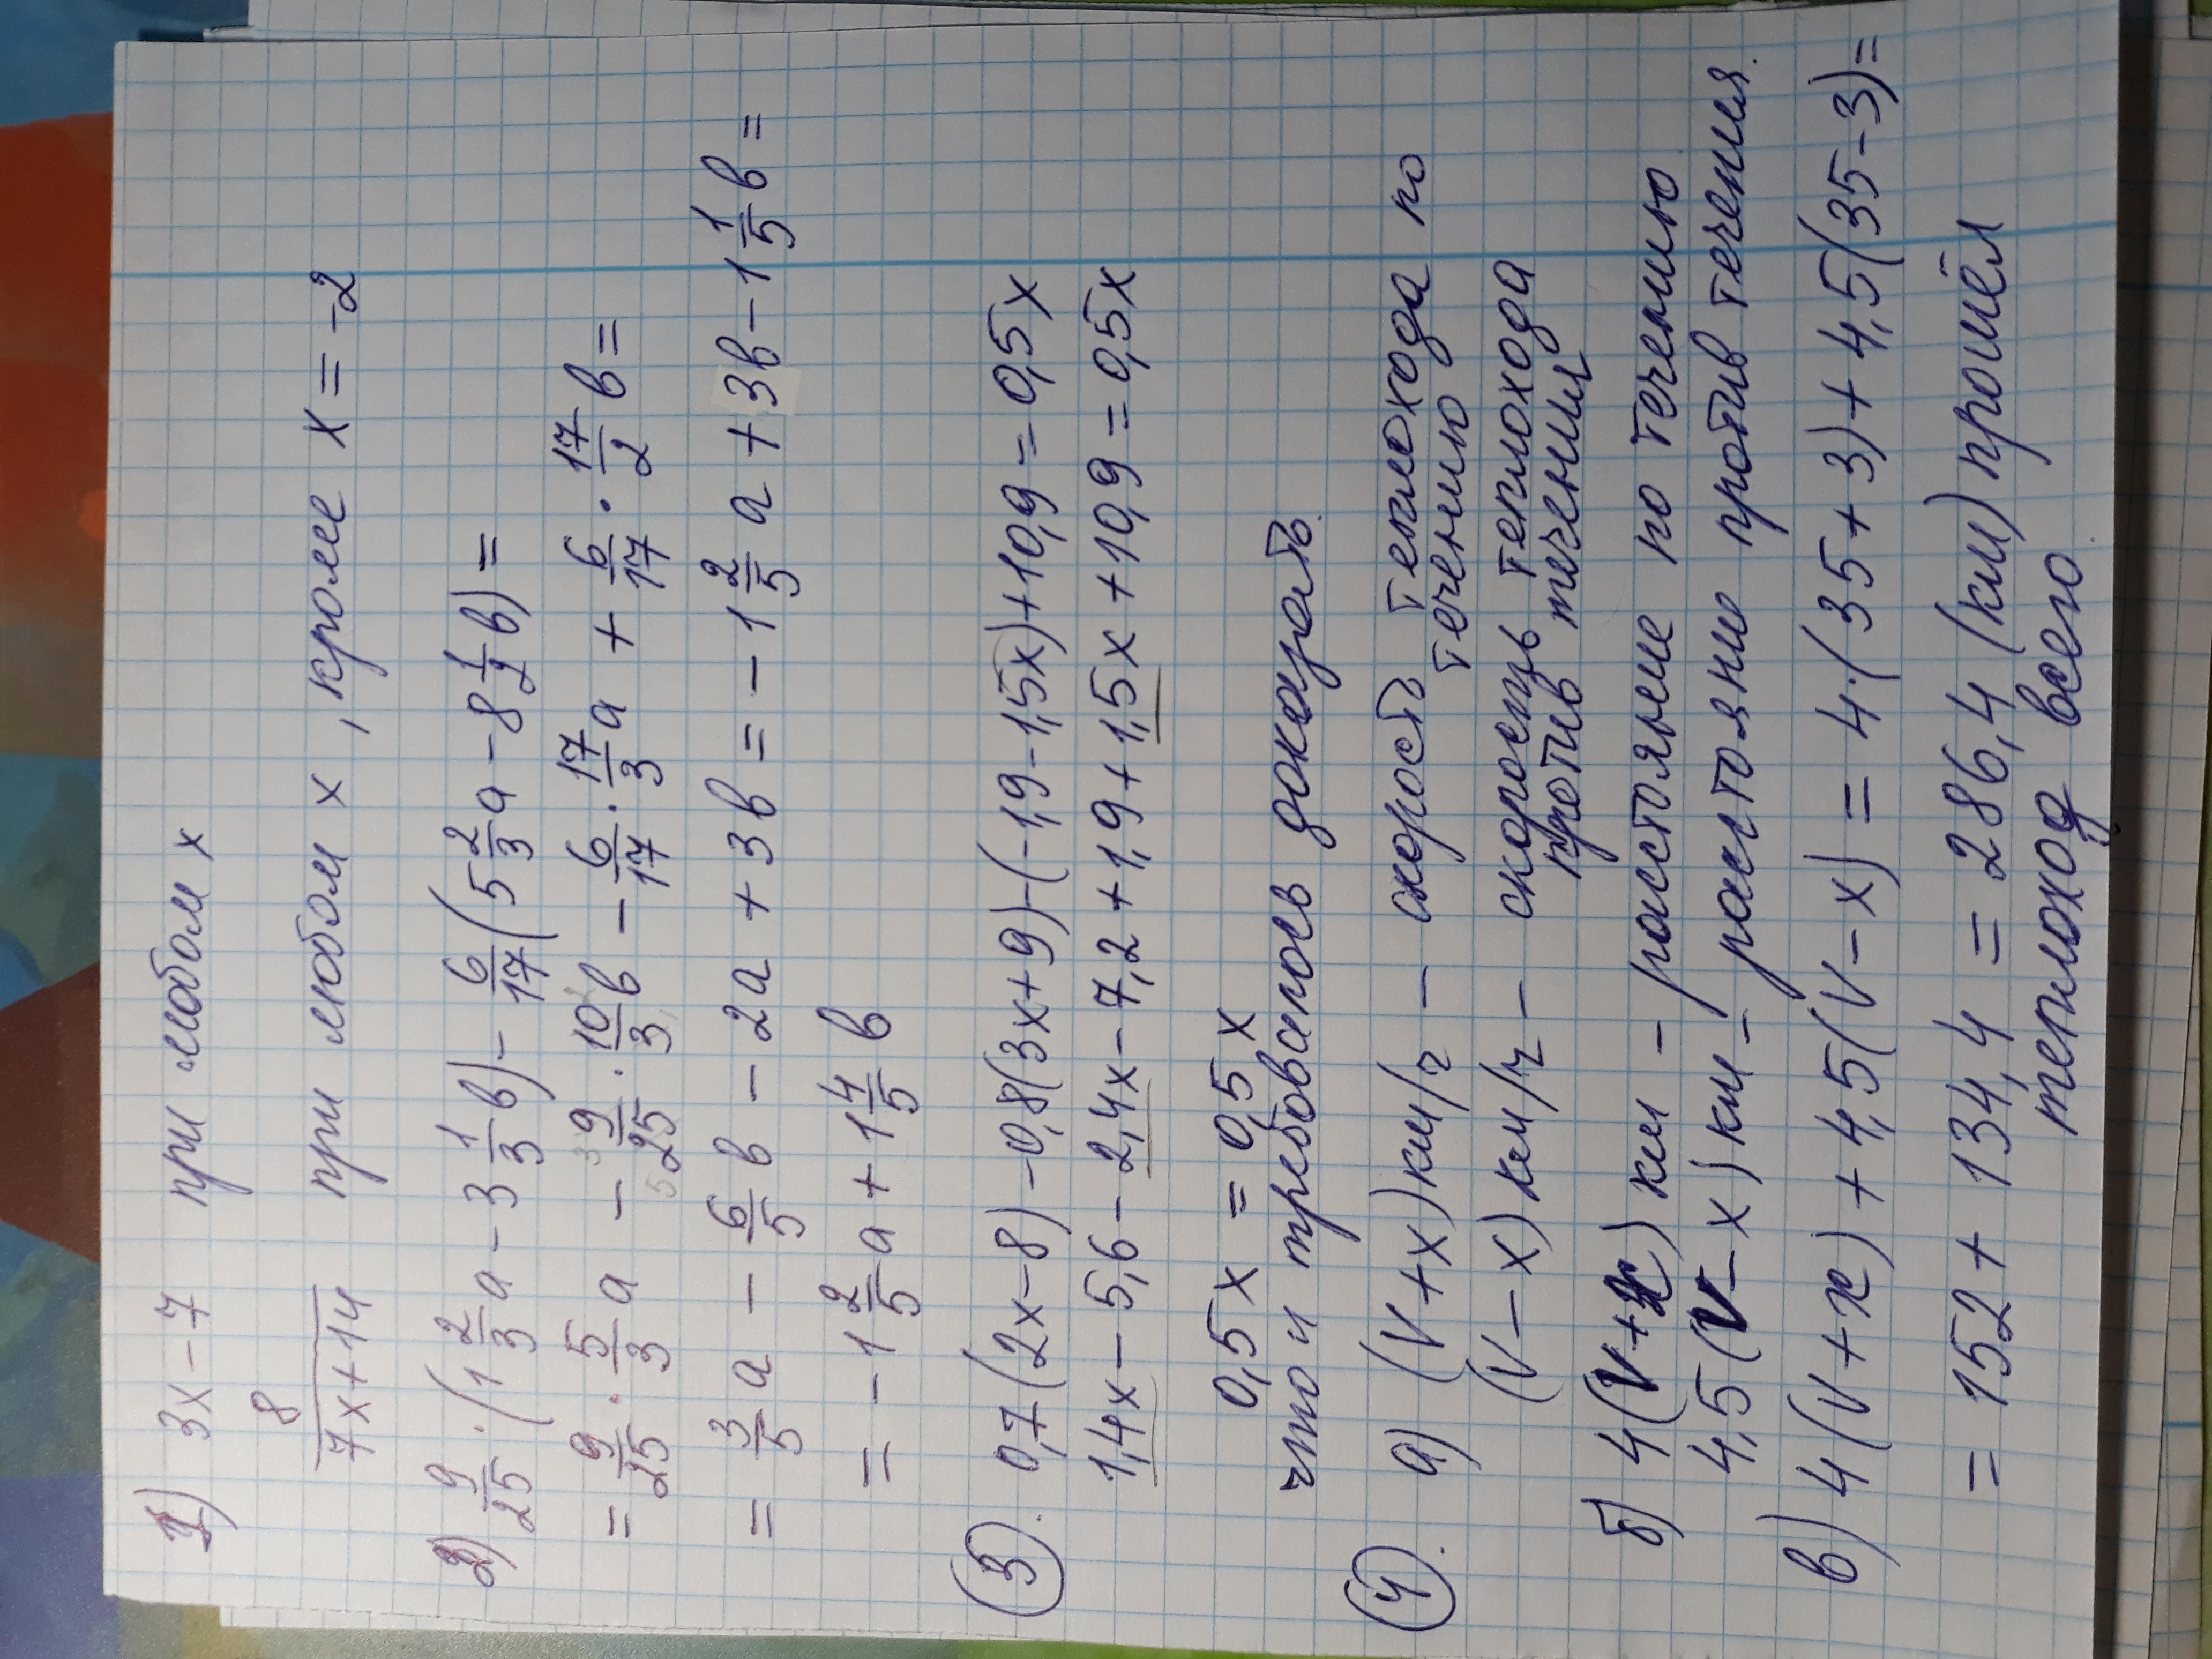 1) 3x-7 при любом x
8/(7x+14) при любом x, кроме x = -2
2) 9/25 · (1 2/3 a - 3 1/3 в) - 6/17 (5 2/3 a - 8 1/2 в) =
= 9/25 · 5/3 a - 9/25 · 10/3 в - 6/17 · 17/3 a + 6/17 · 17/2 в =
= 3/5 a - 6/5 в - 2a + 3в = -1 2/5 a + 3в - 1 1/5 в =
= -1 2/5 a + 1 4/5 в
3. 0,7(2x-8) - 0,8(3x+9) - (-1,9-1,5x) + 10,9 = 0,5x
1,4x - 5,6 - 2,4x - 7,2 + 1,9 + 1,5x + 10,9 = 0,5x
0,5x = 0,5x
что и требовалось доказать.
4. а) (V+x) км/ч - скорость теплохода по
течению
(V-x) км/ч - скорость теплохода
против течения
б) 4(V+x) км - расстояние по течению
4,5(V-x) км - расстояние против течения.
в) 4(V+x) + 4,5(V-x) = 4·(35+3) + 4,5(35-3) =
= 152 + 134,4 = 286,4 (км) прошёл
теплоход всего.